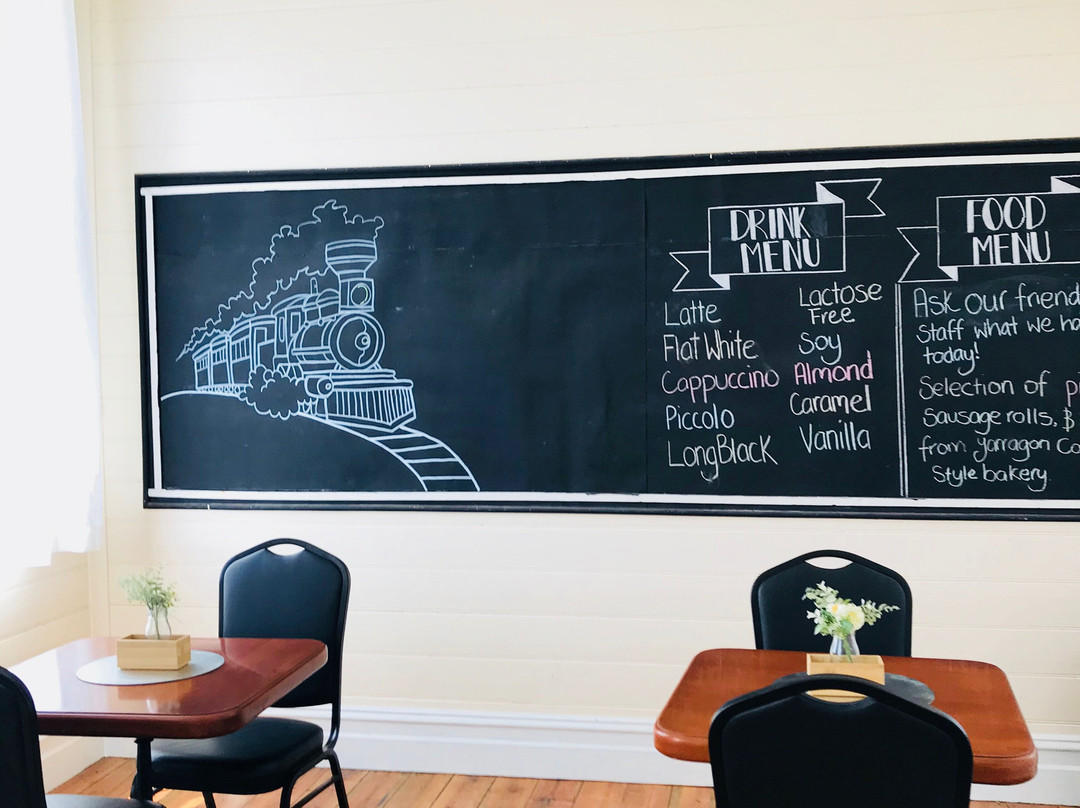 DRINK
MENU
Latte
Flat White
Cappuccino
Piccolo
Long Black
Lactose
Free
Soy
Almond
Caramel
Vanilla
FOOD
MENU
Ask our friend
Staff what we ha
today!
Selection of
Sausage rolls, $
from yarragon Co
Style bakery.